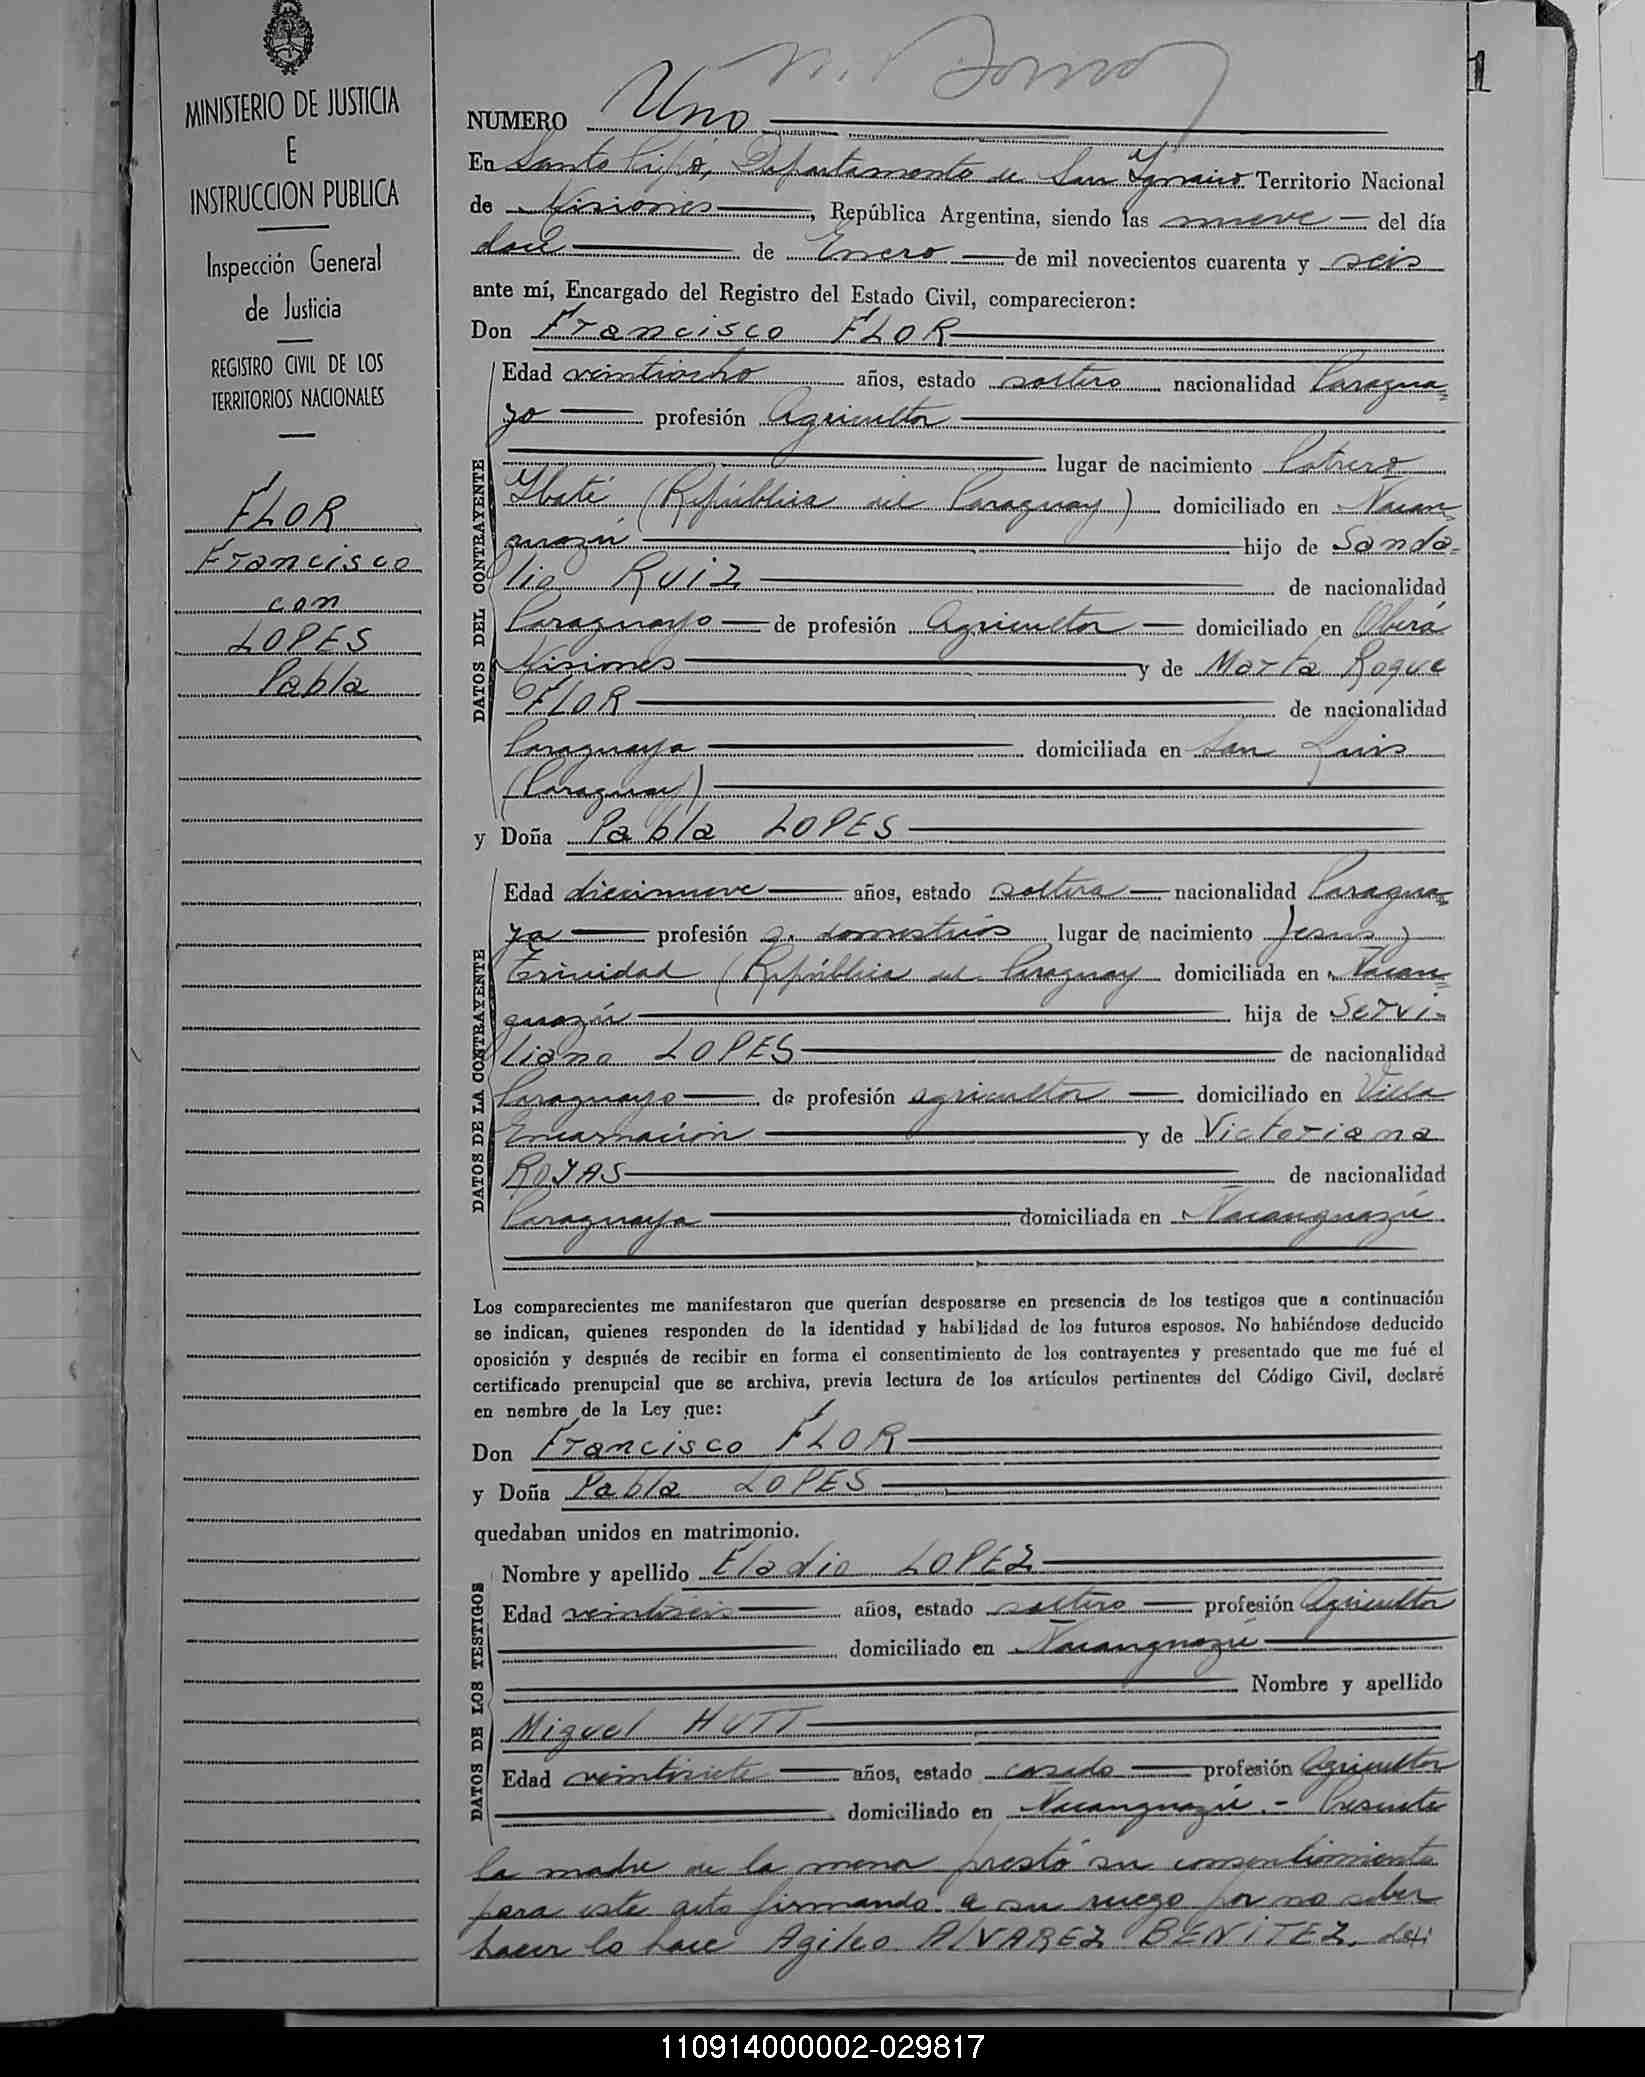 MINISTERIO DE JUSTICIA
E
INSTRUCCION PUBLICA
Inspección General
de Justicia
REGISTRO CIVIL DE LOS
TERRITORIOS NACIONALES
FLOR
Francisco
con
LOPES
Pabla
1
NUMERO Uno
En Santo Pipó, Departamento de San Ygnacio Territorio Nacional
de Misiones, República Argentina, siendo las nueve del día
doce de Enero de mil novecientos cuarenta y seis
ante mí, Encargado del Registro del Estado Civil, comparecieron:
Don Francisco FLOR
DATOS DEL CONTRAYENTE
Edad veintiocho años, estado soltero nacionalidad Paragua-
yo profesión Agricultor
lugar de nacimiento Potrero
Ybaté (República del Paraguay) domiciliado en Ñacan-
guazú hijo de Sanda-
lio RUIZ de nacionalidad
Paraguayo de profesión Agricultor domiciliado en Oberá
Misiones y de Marta Roque
FLOR de nacionalidad
Paraguaya domiciliada en San Luis
(Paraguay)
y Doña Pabla LOPES
DATOS DE LA CONTRAYENTE
Edad diecinueve años, estado soltera nacionalidad Paragua-
ya profesión q. domesticos lugar de nacimiento Jesus y
Trinidad (República del Paraguay domiciliada en Ñacan-
guazú hija de Servi-
liano LOPES de nacionalidad
Paraguayo de profesión agricultor domiciliado en Villa
Encarnación y de Victoriana
ROJAS de nacionalidad
Paraguaya domiciliada en Ñacanguazú
Los comparecientes me manifestaron que querían desposarse en presencia de los testigos que a continuación
se indican, quienes responden de la identidad y habilidad de los futuros esposos. No habiéndose deducido
oposición y después de recibir en forma el consentimiento de los contrayentes y presentado que me fué el
certificado prenupcial que se archiva, previa lectura de los artículos pertinentes del Código Civil, declaré
en nombre de la Ley que:
Don Francisco FLOR
y Doña Pabla LOPES
quedaban unidos en matrimonio.
DATOS DE LOS TESTIGOS
Nombre y apellido Eladio LOPEZ
Edad veintiseis años, estado soltero profesión Agricultor
domiciliado en Ñacanguazú
Nombre y apellido
Miguel HUTT
Edad veintisiete años, estado casado profesión Agricultor
domiciliado en Ñacanguazú.- Presente
la madre de la menor prestó su consentimiento
para este acto firmando a su ruego por no saber
hacer lo hace Agileo ALVAREZ BENITEZ. de
110914000002-029817